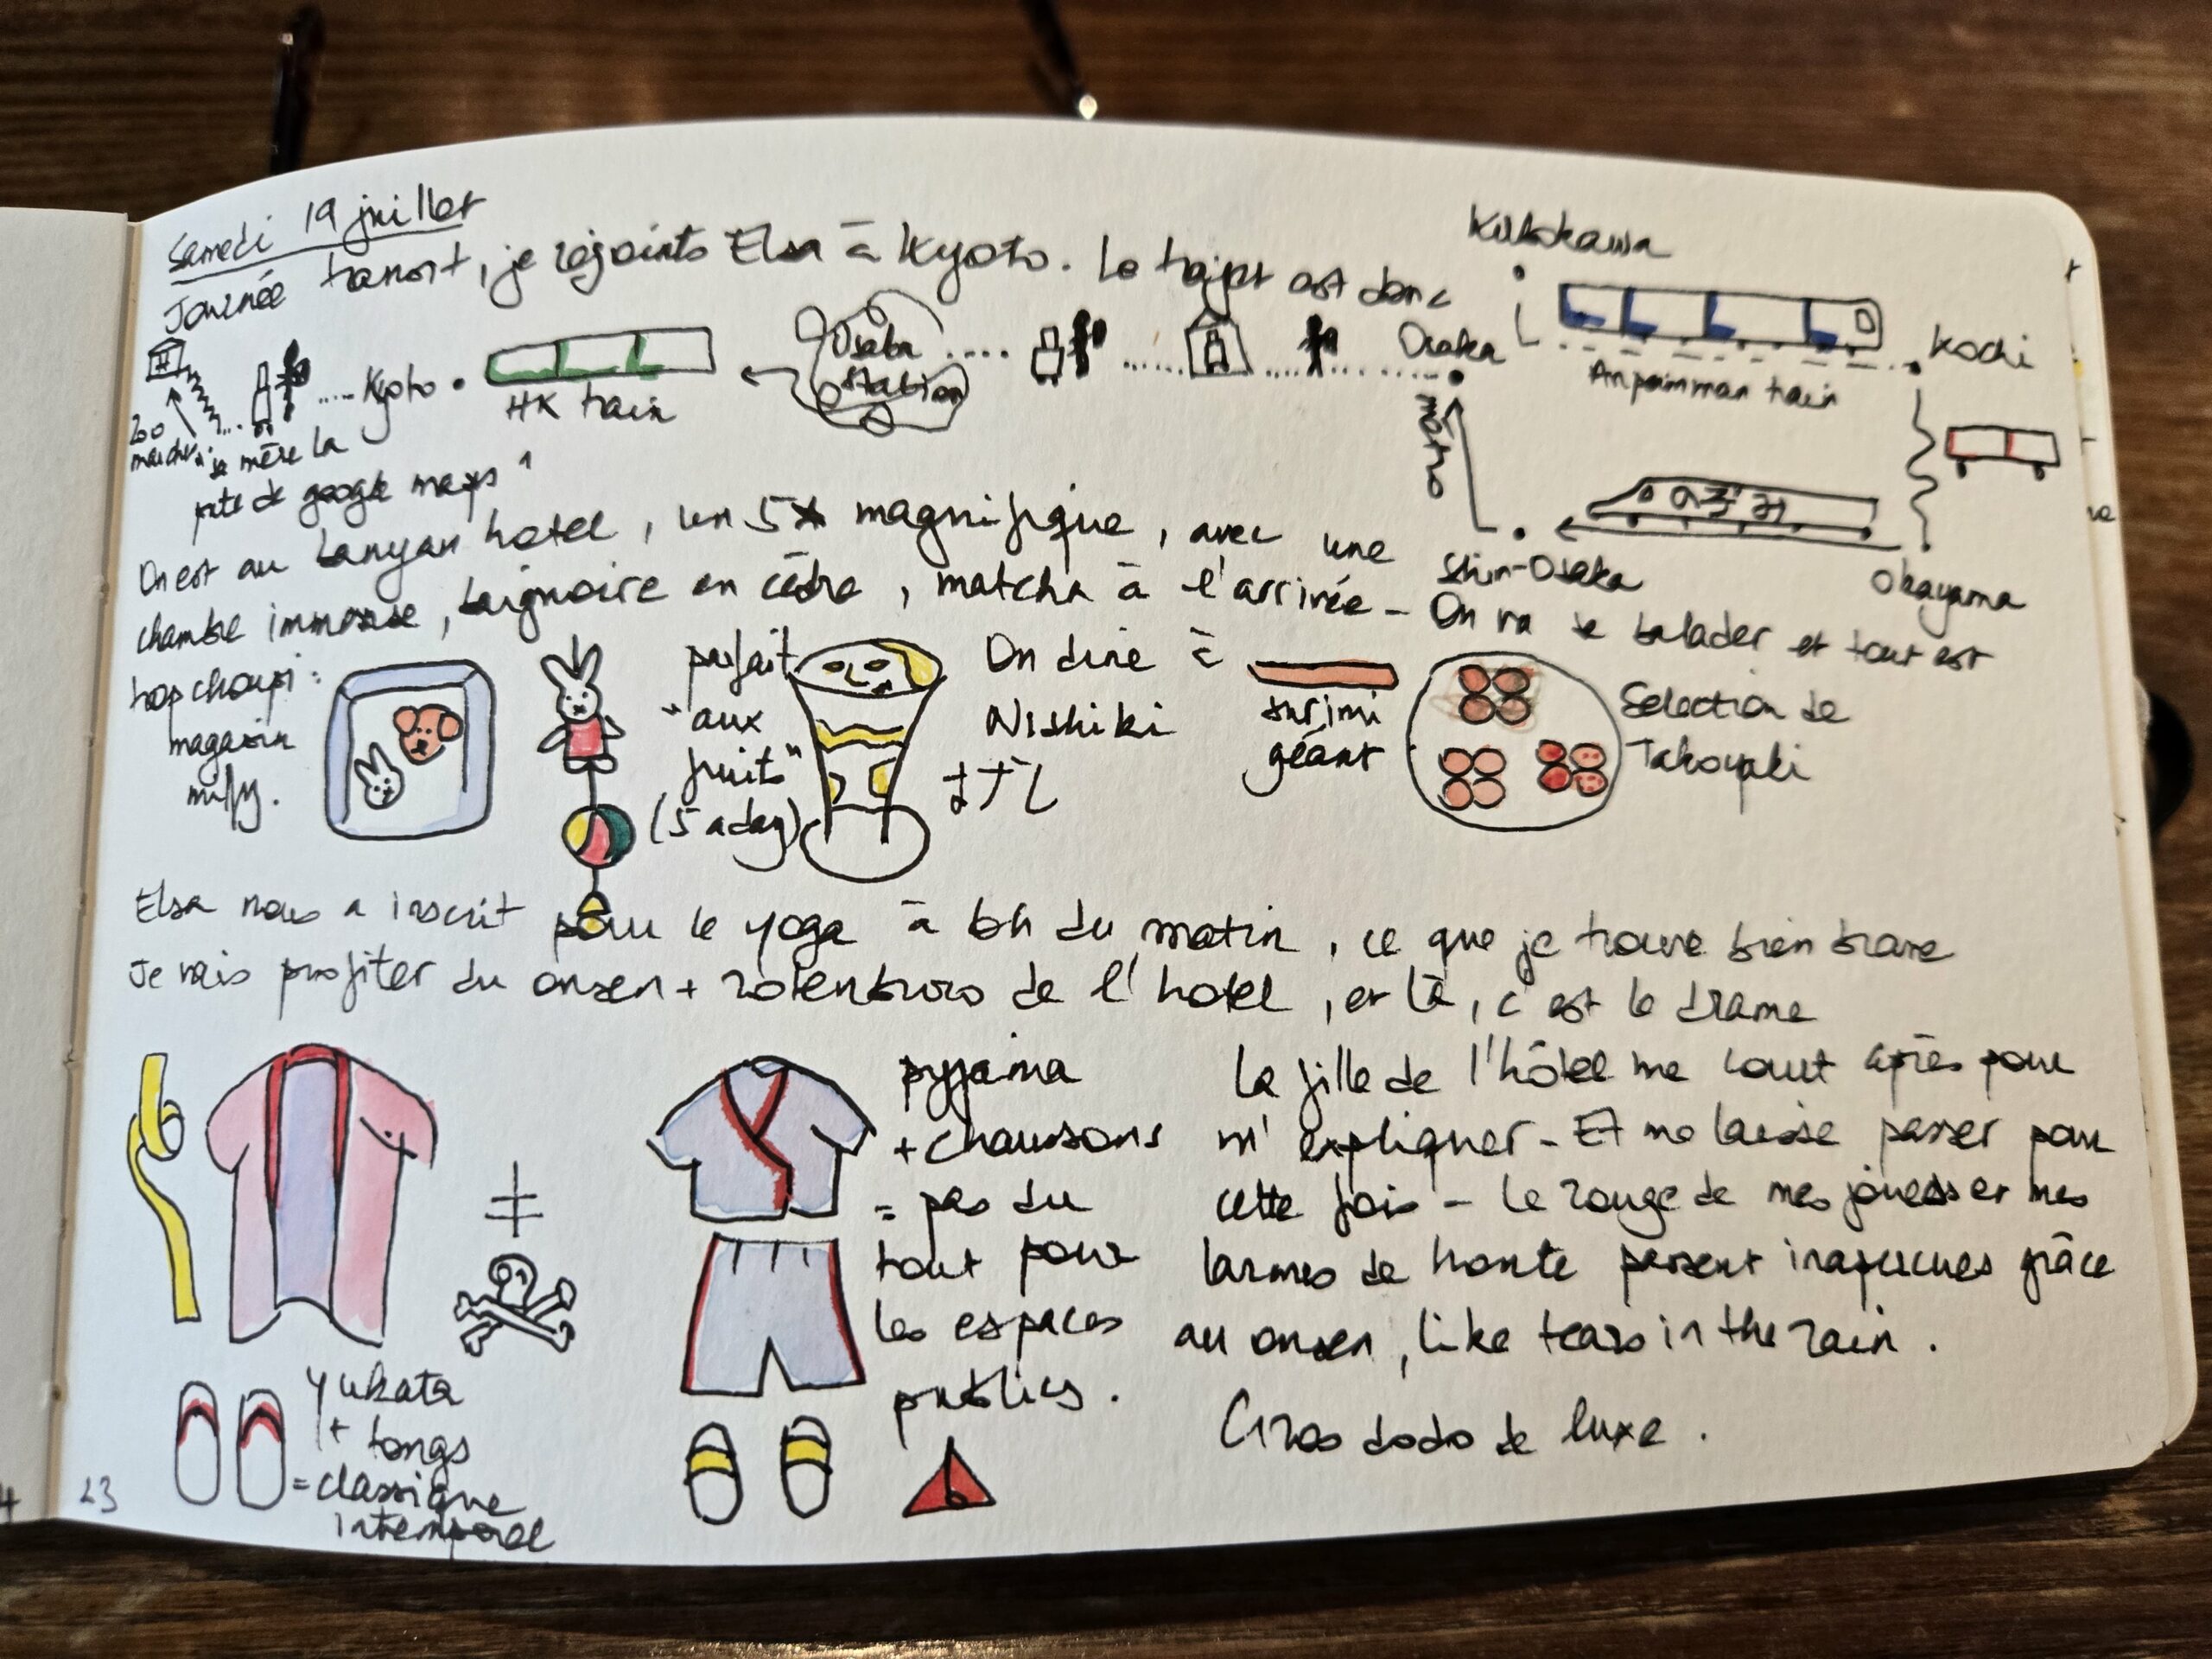 Samedi 19 juillet
Journée transort, je rejoints Elsa à Kyoto. Le trajet est donc
Kubokawa
Anpainman train
Kochi
Okayama
Shin-Osaka
métro
Osaka
Osaka station
HK train
Kyoto
200 marches
sa mère la
pute de google maps
On est au banyan hotel, un 5* magnifique, avec une
chambre immense, baignoire en cèdre, matcha à l'arrivée - On va se balader et tout est
trop choupi :
magasin
miffy.
parfait
"aux
fruits"
(5 a day)
On dine à
Nishiki
surimi
géant
Selection de
Takoyaki
Elsa nous a inscrit pour le yoga à 6h du matin, ce que je trouve bien brave
Je vais profiter du onsen + rotenburo de l'hotel, et là, c'est le drame
yukata
+ tongs
= classique
intemporel
≠
pyjama
+ chaussons
= pas du
tout pour
les espaces
publics.
La fille de l'hôtel me court après pour
m'expliquer - Et me laisse passer pour
cette fois - Le rouge de mes joues et mes
larmes de honte passent inaperçues grâce
au onsen, like tears in the rain.
Gros dodo de luxe.
23